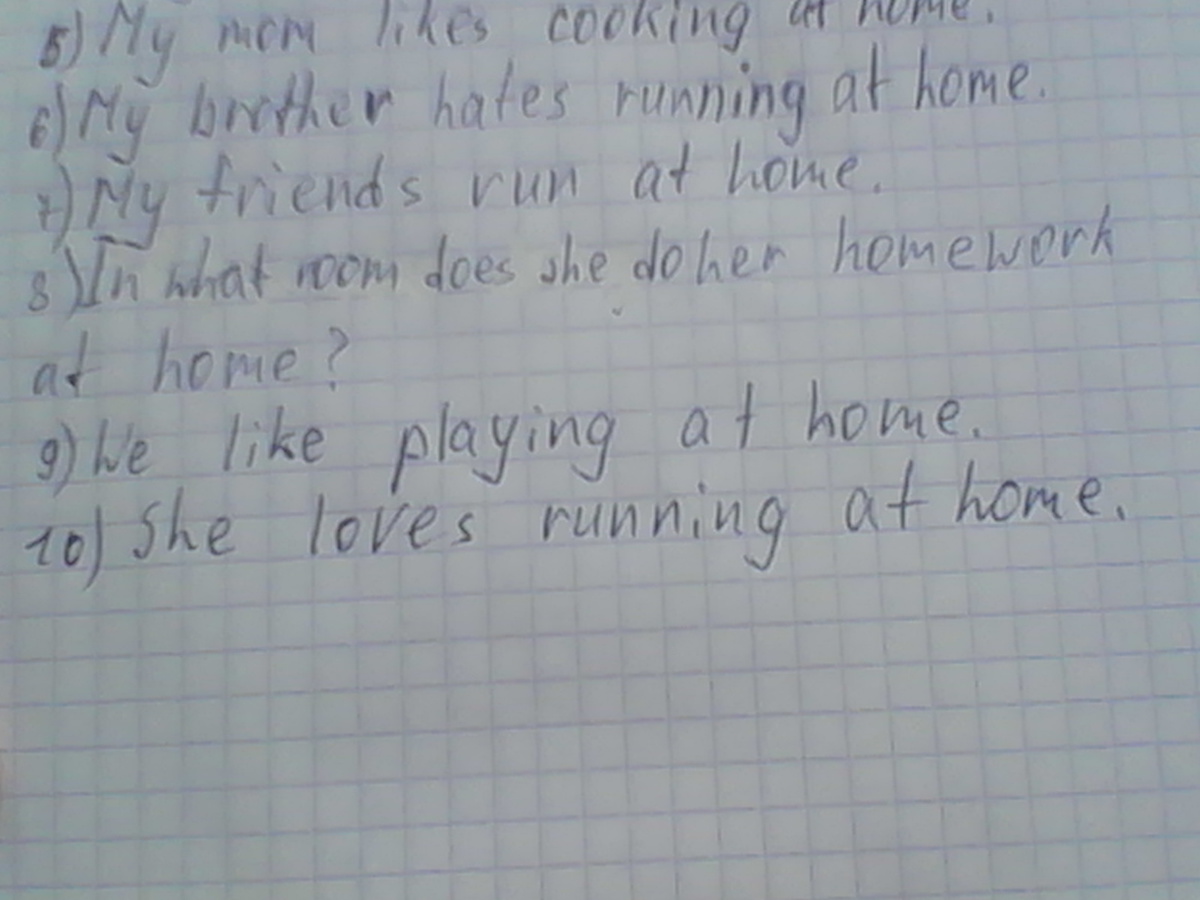 5) My mom likes cooking at home.
6) My brother hates running at home.
7) My friends run at home.
8) In what room does she do her homework
at home?
9) We like playing at home.
10) She loves running at home.